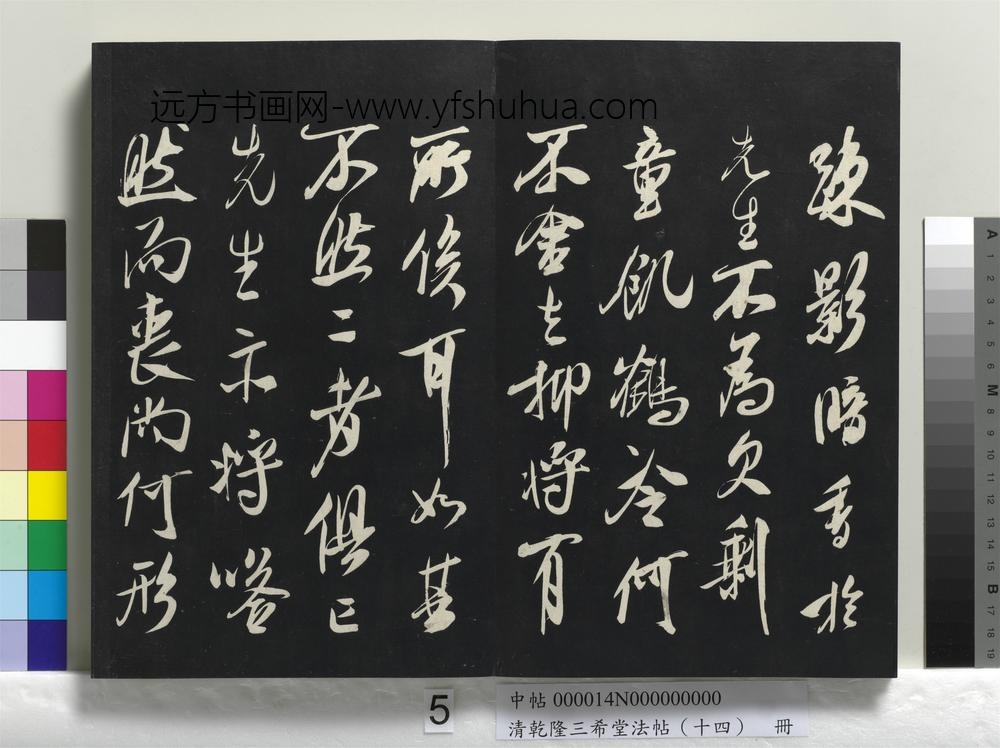 远方书画网-www.yfshuhua.com
疎影暗香於
先生不為欠剩
童飢鶴冷何
不舍去抑將有
所俟耳如其
不然二者俱亡
先生亦將嗒
然而喪尚何形
5
中帖 000014N000000000
清乾隆三希堂法帖（十四） 冊
A 1 2 3 4 5 6 M 8 9 10 11 12 13 14 15 B 17 18 19